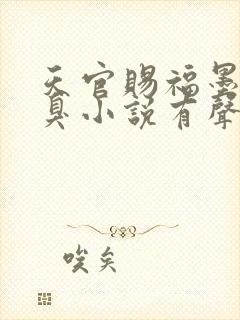 天官賜福墨
臭小說有聲
唉矣